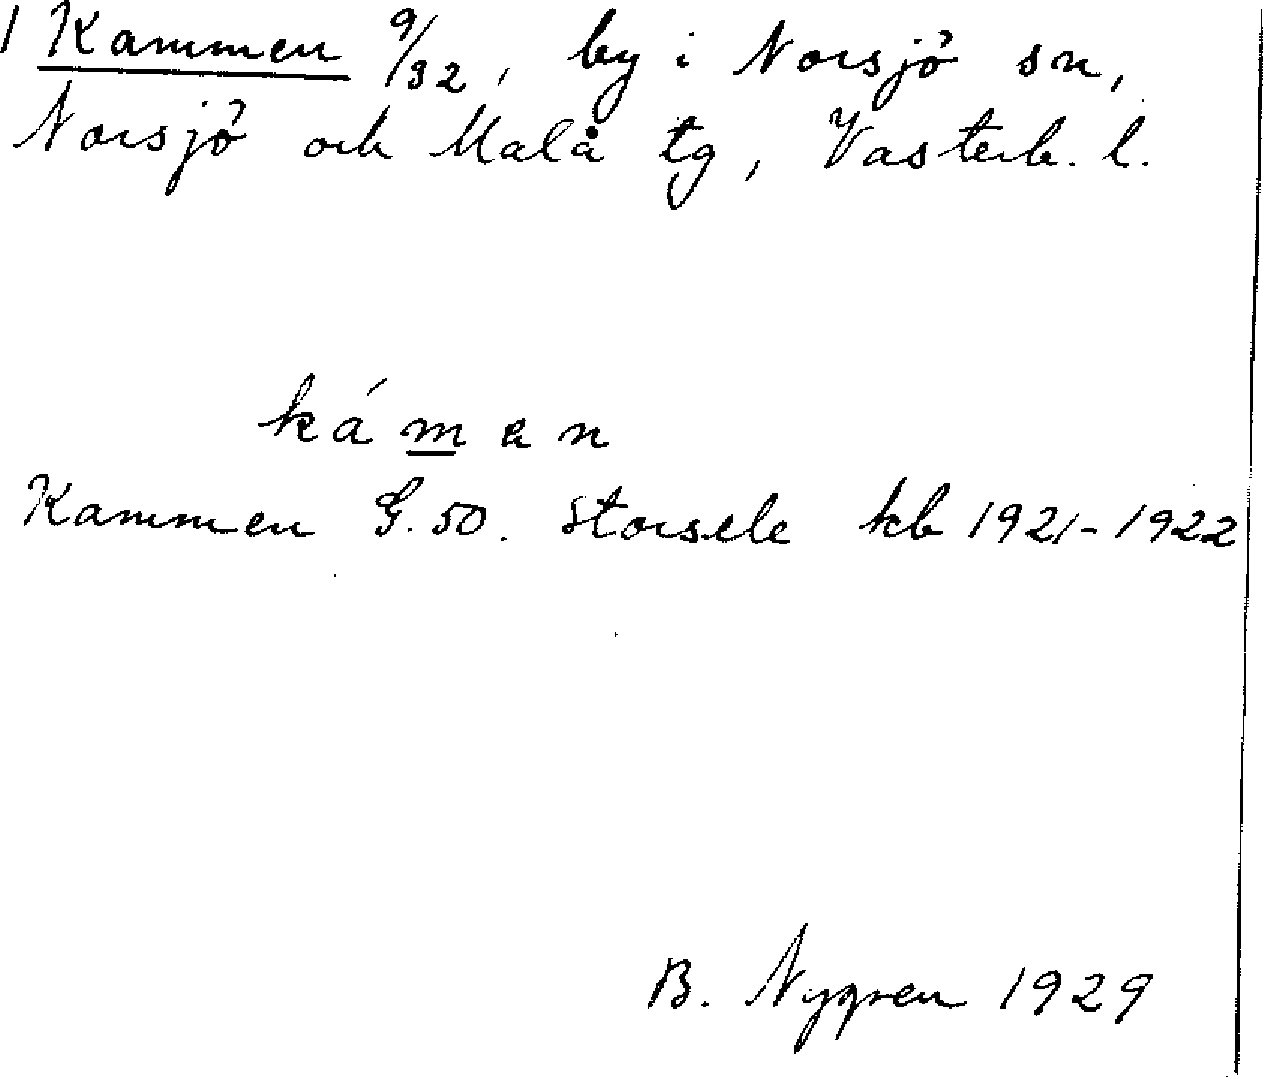 1 Kammen 9/32, by i Norsjö sn,
Norsjö och Malå tg, Västerb. l.
ká m e n
Kammen G. 50. Storsele kb 1921-1922
B. Nygren 1929